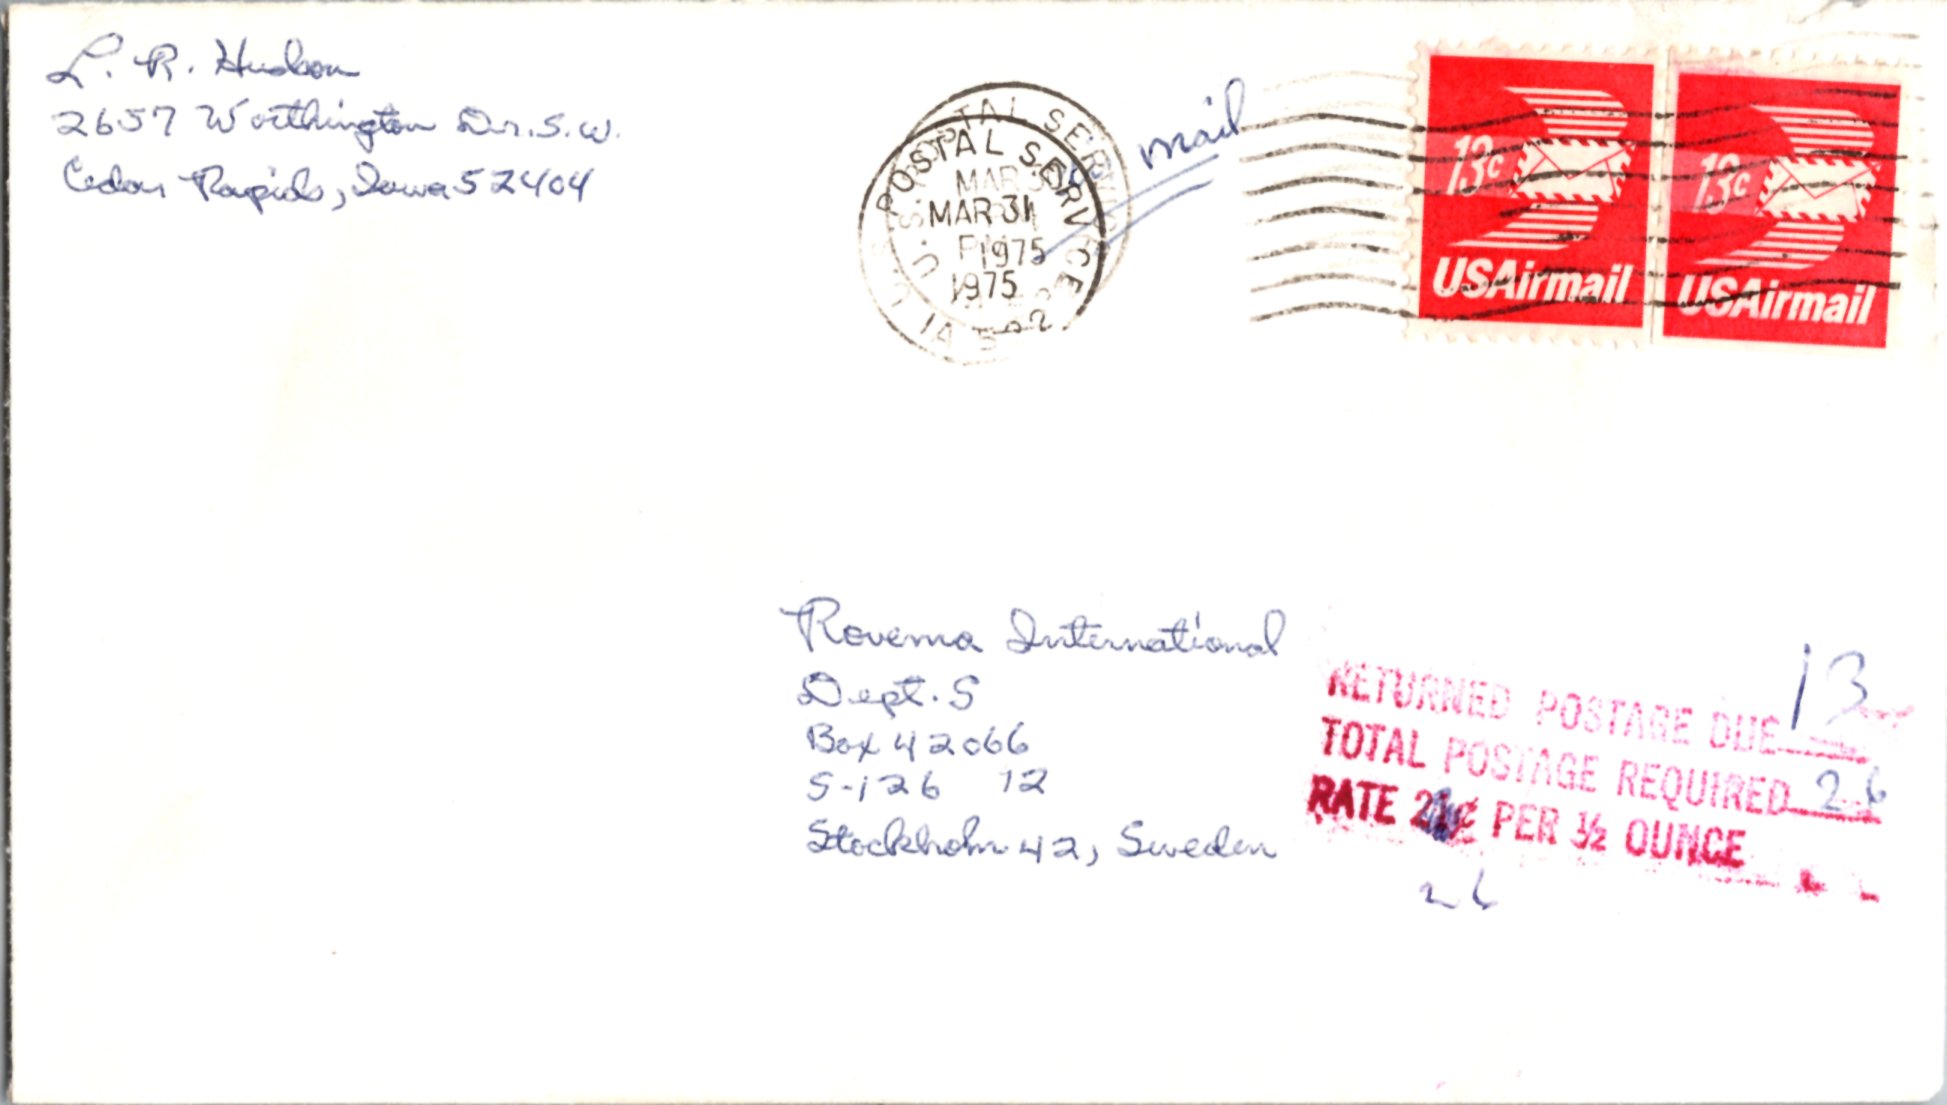 L. R. Hudson
2657 Worthington Dr. S.W.
Cedar Rapids, Iowa 52404
U.S. POSTAL SERVICE
MAR 31
PM
1975
IA 522
U.S. POSTAL SERVICE
MAR 31
1975
mail
13c
USAirmail
13c
USAirmail
Rovema International
Dept. S
Box 42066
S-126 12
Stockholm 42, Sweden
RETURNED POSTAGE DUE 13
TOTAL POSTAGE REQUIRED 26
RATE 21¢ PER ½ OUNCE
26